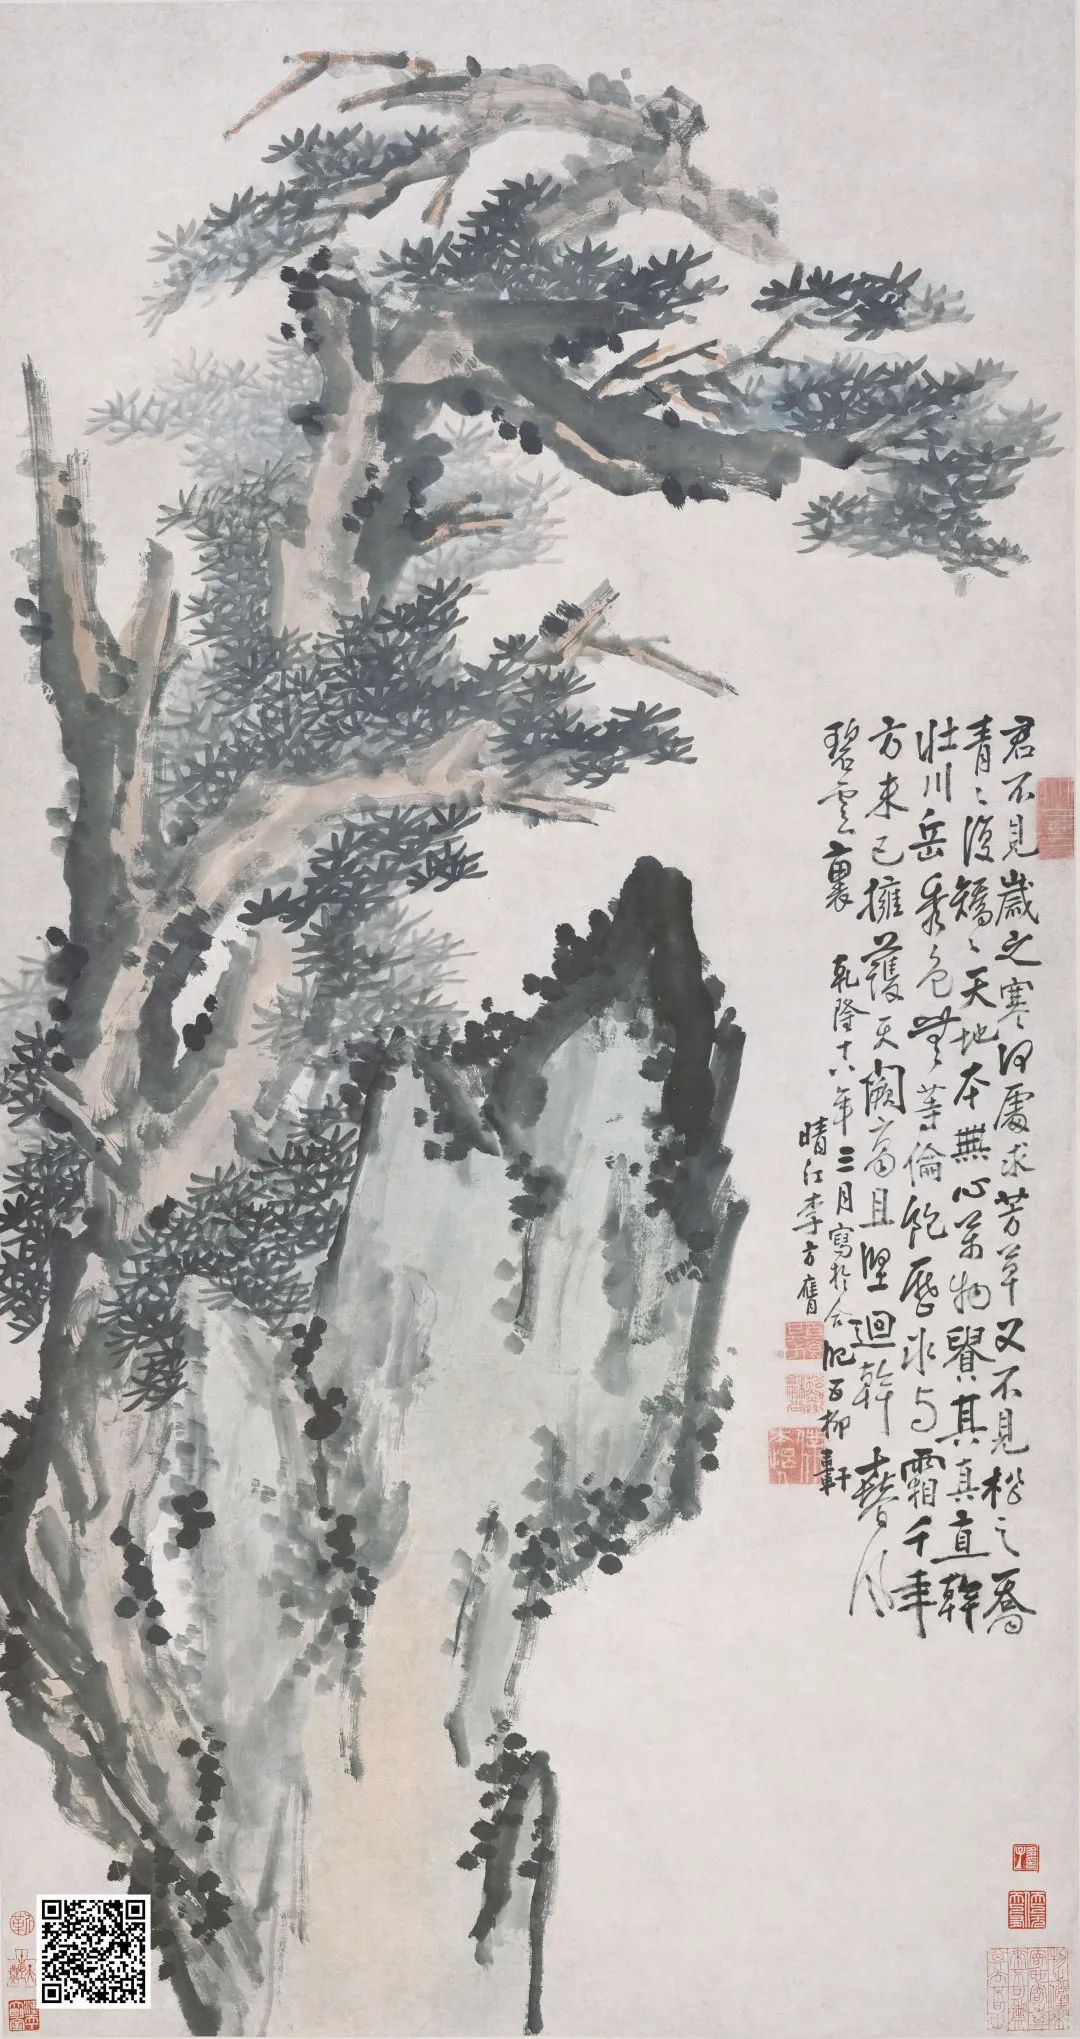 君不見歲之寒何處求芳草又不見松之喬
青々復矯々天地本無心萬物貴其真直幹
壯川岳秀色無等倫飽歷冰与霜千年
方未已擁護天闕高且堅迴幹春風
碧雲裏
乾隆十八年三月寫於合肥五柳軒
晴江李方膺